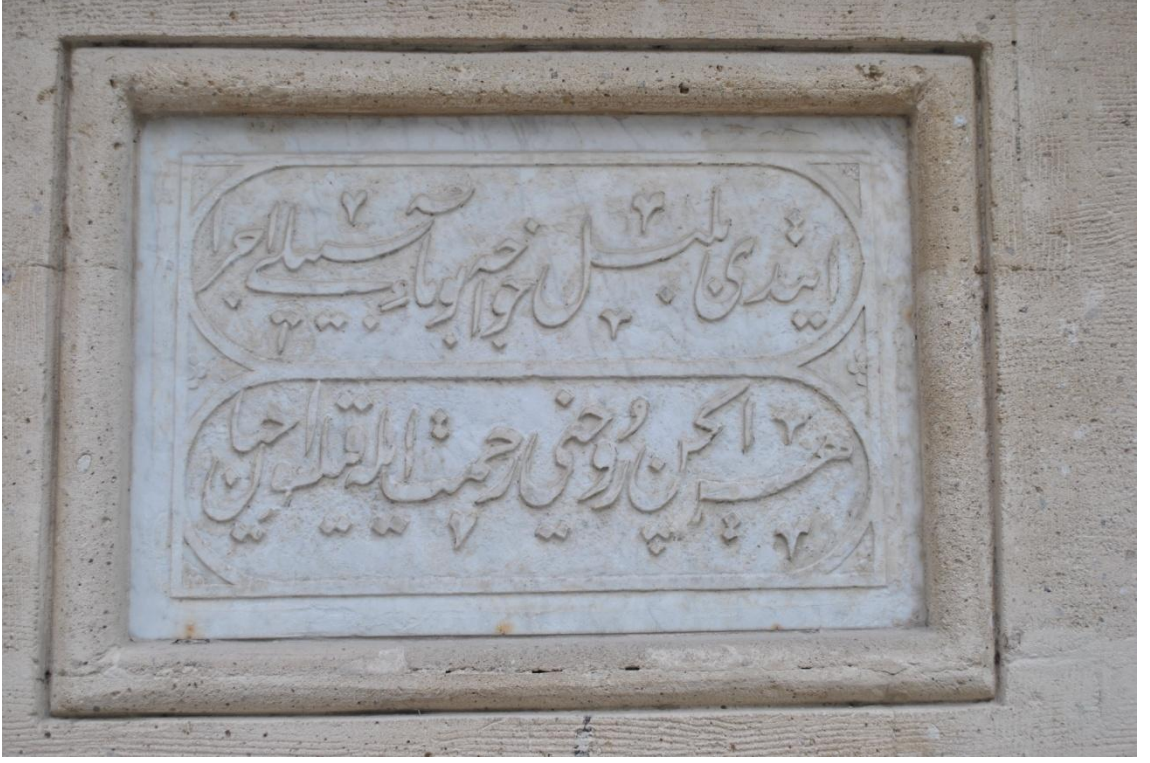 ایتدی بلبل خواجه بو مآء سبیلی اجرا
هر ایچن روحنی رحمت ایله قیلسون احیا